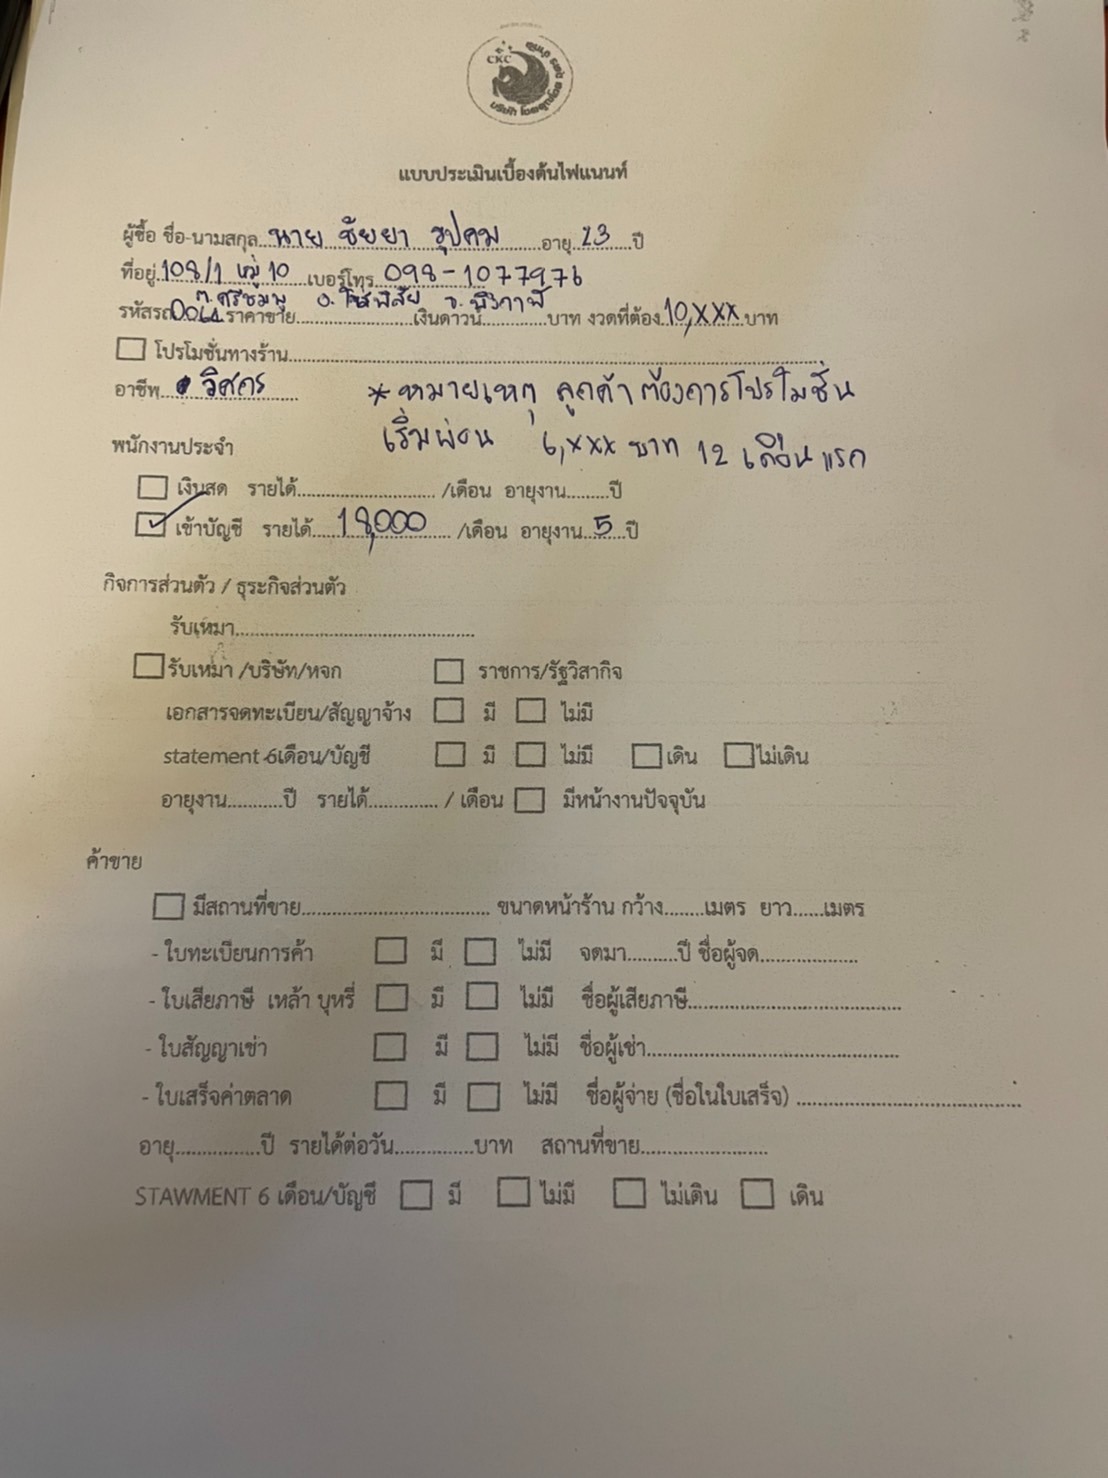 CKC
แบบประเมินเบื้องต้นไฟแนนท์
ผู้ซื้อ ชื่อ-นามสกุล..นาย ชัยยา รูปคม......อายุ..23.....ปี
ที่อยู่.108/1 หมู่ 10 ...เบอร์โทร. 098-1077976
ต.ศรีชมพู อ.โซ่พิสัย จ.บึงกาฬ
รหัสรถ ราคาขาย........................เงินดาวน์.............บาท งวดที่ต้อง.10,xxx.บาท
โปรโมชั่นทางร้าน........................................................
อาชีพ....วิศกร......
*หมายเหตุ ลูกค้าต้องการโปรโมชั่น
เริ่มผ่อน 6,xxx บาท 12 เดือนแรก
พนักงานประจำ
เงินสด รายได้........................ /เดือน อายุงาน.........ปี
เข้าบัญชี รายได้....18,000..... /เดือน อายุงาน..5...ปี
กิจการส่วนตัว / ธุระกิจส่วนตัว
รับเหมา..........................................
รับเหมา /บริษัท/หจก ราชการ/รัฐวิสากิจ
เอกสารจดทะเบียน/สัญญาจ้าง มี ไม่มี
statement 6เดือน/บัญชี มี ไม่มี เดิน ไม่เดิน
อายุงาน..........ปี รายได้............. / เดือน มีหน้างานปัจจุบัน
ค้าขาย
มีสถานที่ขาย................................. ขนาดหน้าร้าน กว้าง........เมตร ยาว......เมตร
- ใบทะเบียนการค้า มี ไม่มี จดมา..........ปี ชื่อผู้จด..................
- ใบเสียภาษี เหล้า บุหรี่ มี ไม่มี ชื่อผู้เสียภาษี.......................................
- ใบสัญญาเช่า มี ไม่มี ชื่อผู้เช่า..............................................
- ใบเสร็จค่าตลาด มี ไม่มี ชื่อผู้จ่าย (ชื่อในใบเสร็จ) .........................................
อายุ................ปี รายได้ต่อวัน...............บาท สถานที่ขาย.......................
STAWMENT 6 เดือน/บัญชี มี ไม่มี ไม่เดิน เดิน